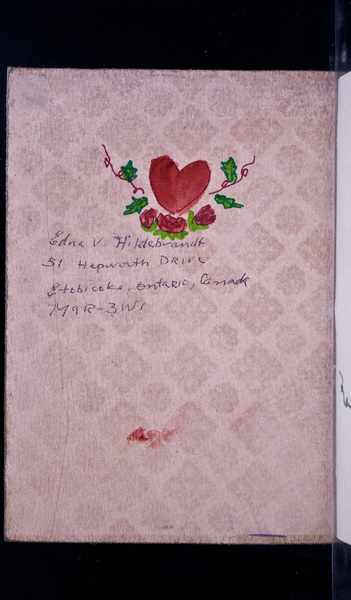 Edna V. Hildebrandt
51 Hepworth DRIVE
Etobicoke, Ontario, Canada
M9R-3W1